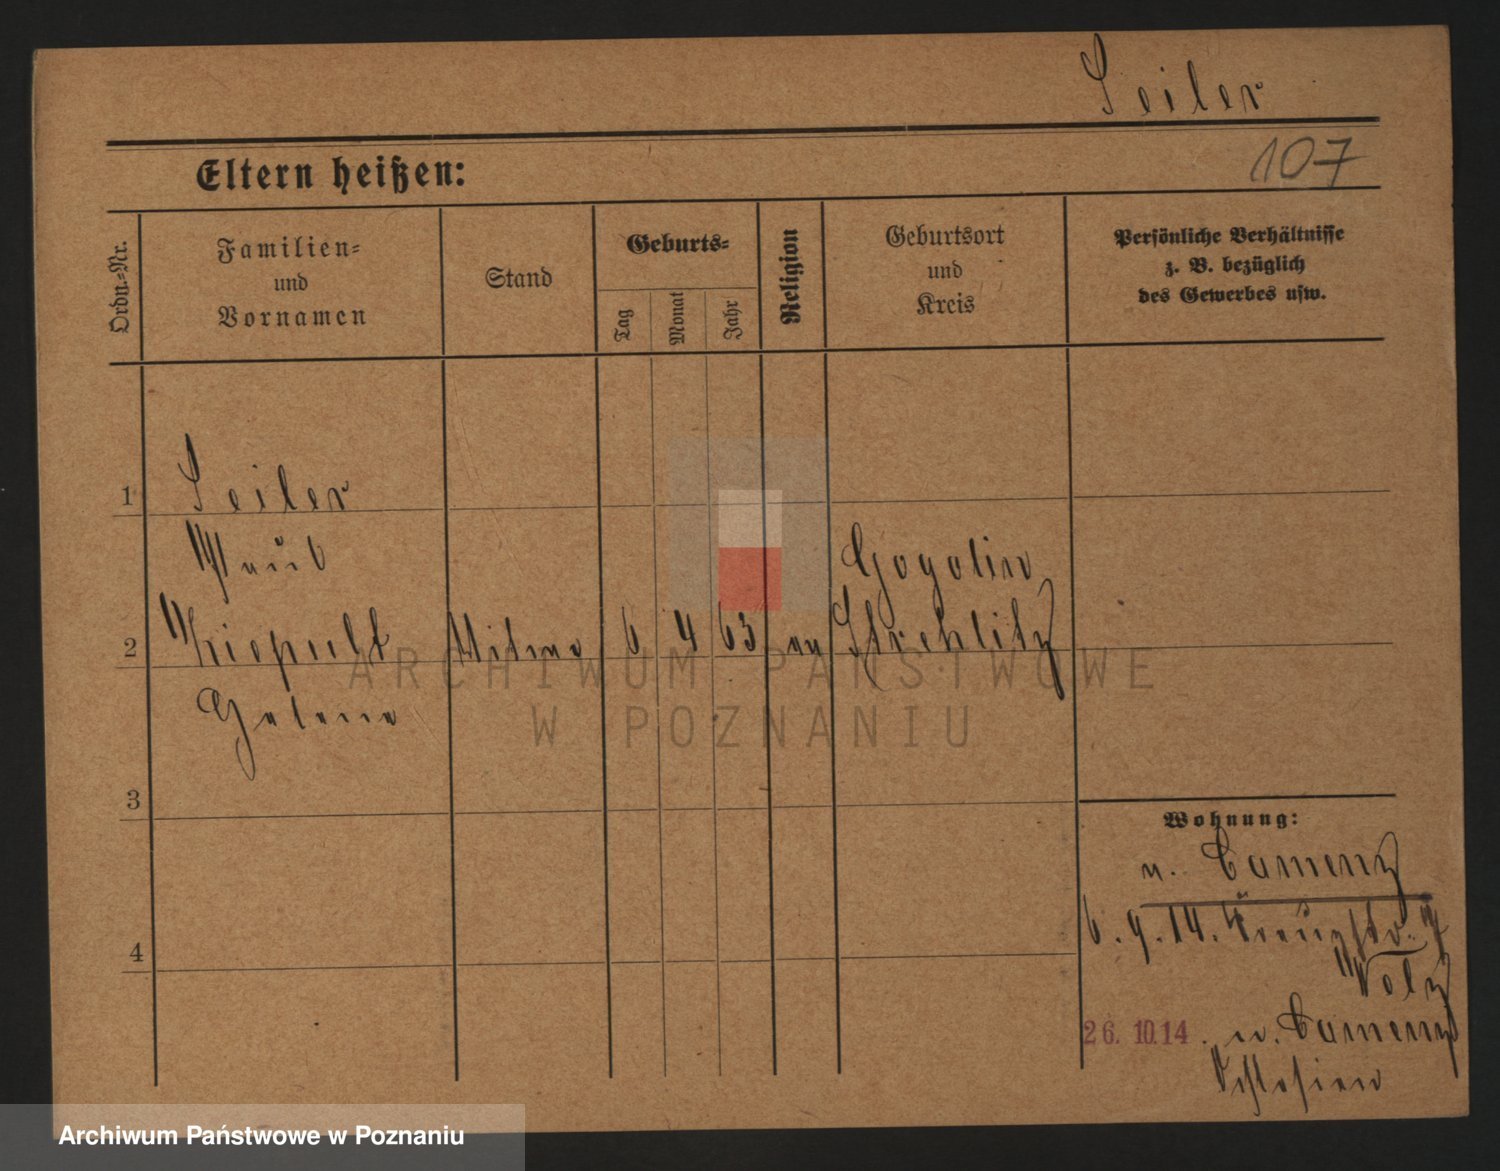 Seiler
107
Eltern heißen:
Ordn.-Nr.
Familien-
und
Vornamen
Stand
Geburts-
Tag
Monat
Jahr
Religion
Geburtsort
und
Kreis
Persönliche Verhältnisse
z. B. bezüglich
des Gewerbes usw.
1
Seiler
Gogolin
2
Witwe 6 4 63 ev Strehlitz
Helene
ARCHIWUM PAŃSTWOWE
W POZNANIU
3
Wohnung:
n. Camenz
6. 9. 14.
4
26. 10. 14. n. Camenz
Schlesien
Archiwum Państwowe w Poznaniu